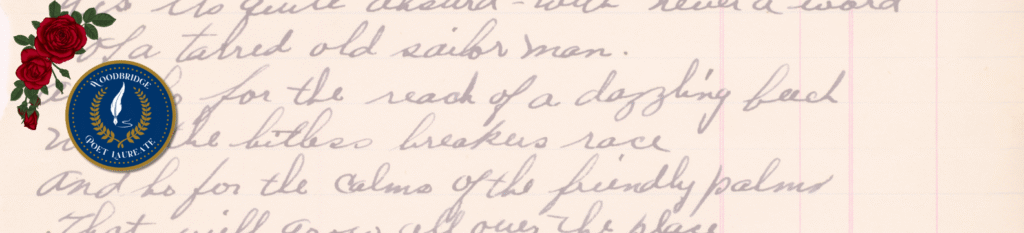 its quite absurd - with never a word
Of a tarred old sailor man.
for the reach of a dazzling beach
the bitless breakers race
And ho for the calms of the friendly palms
That will grow all over the place
WOODBRIDGE
POET LAUREATE